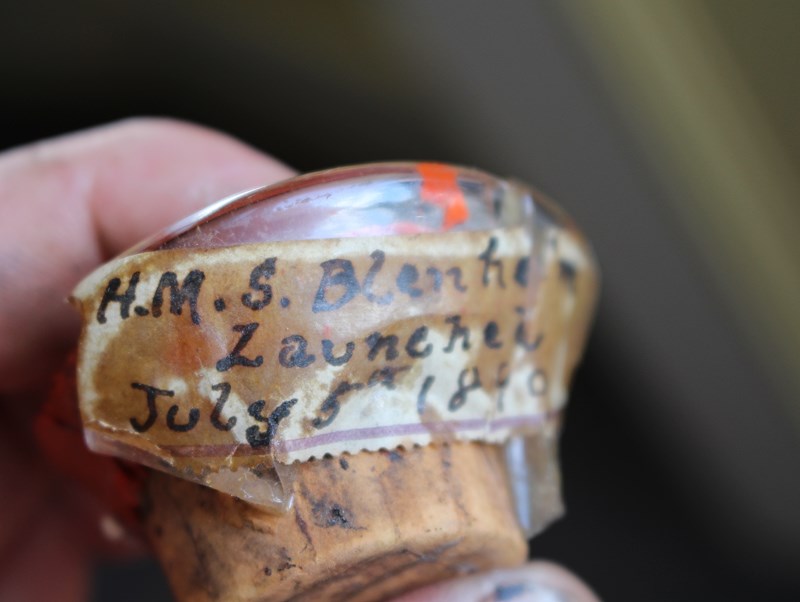 H.M.S. Blenheim
Launched
July 5th 1890